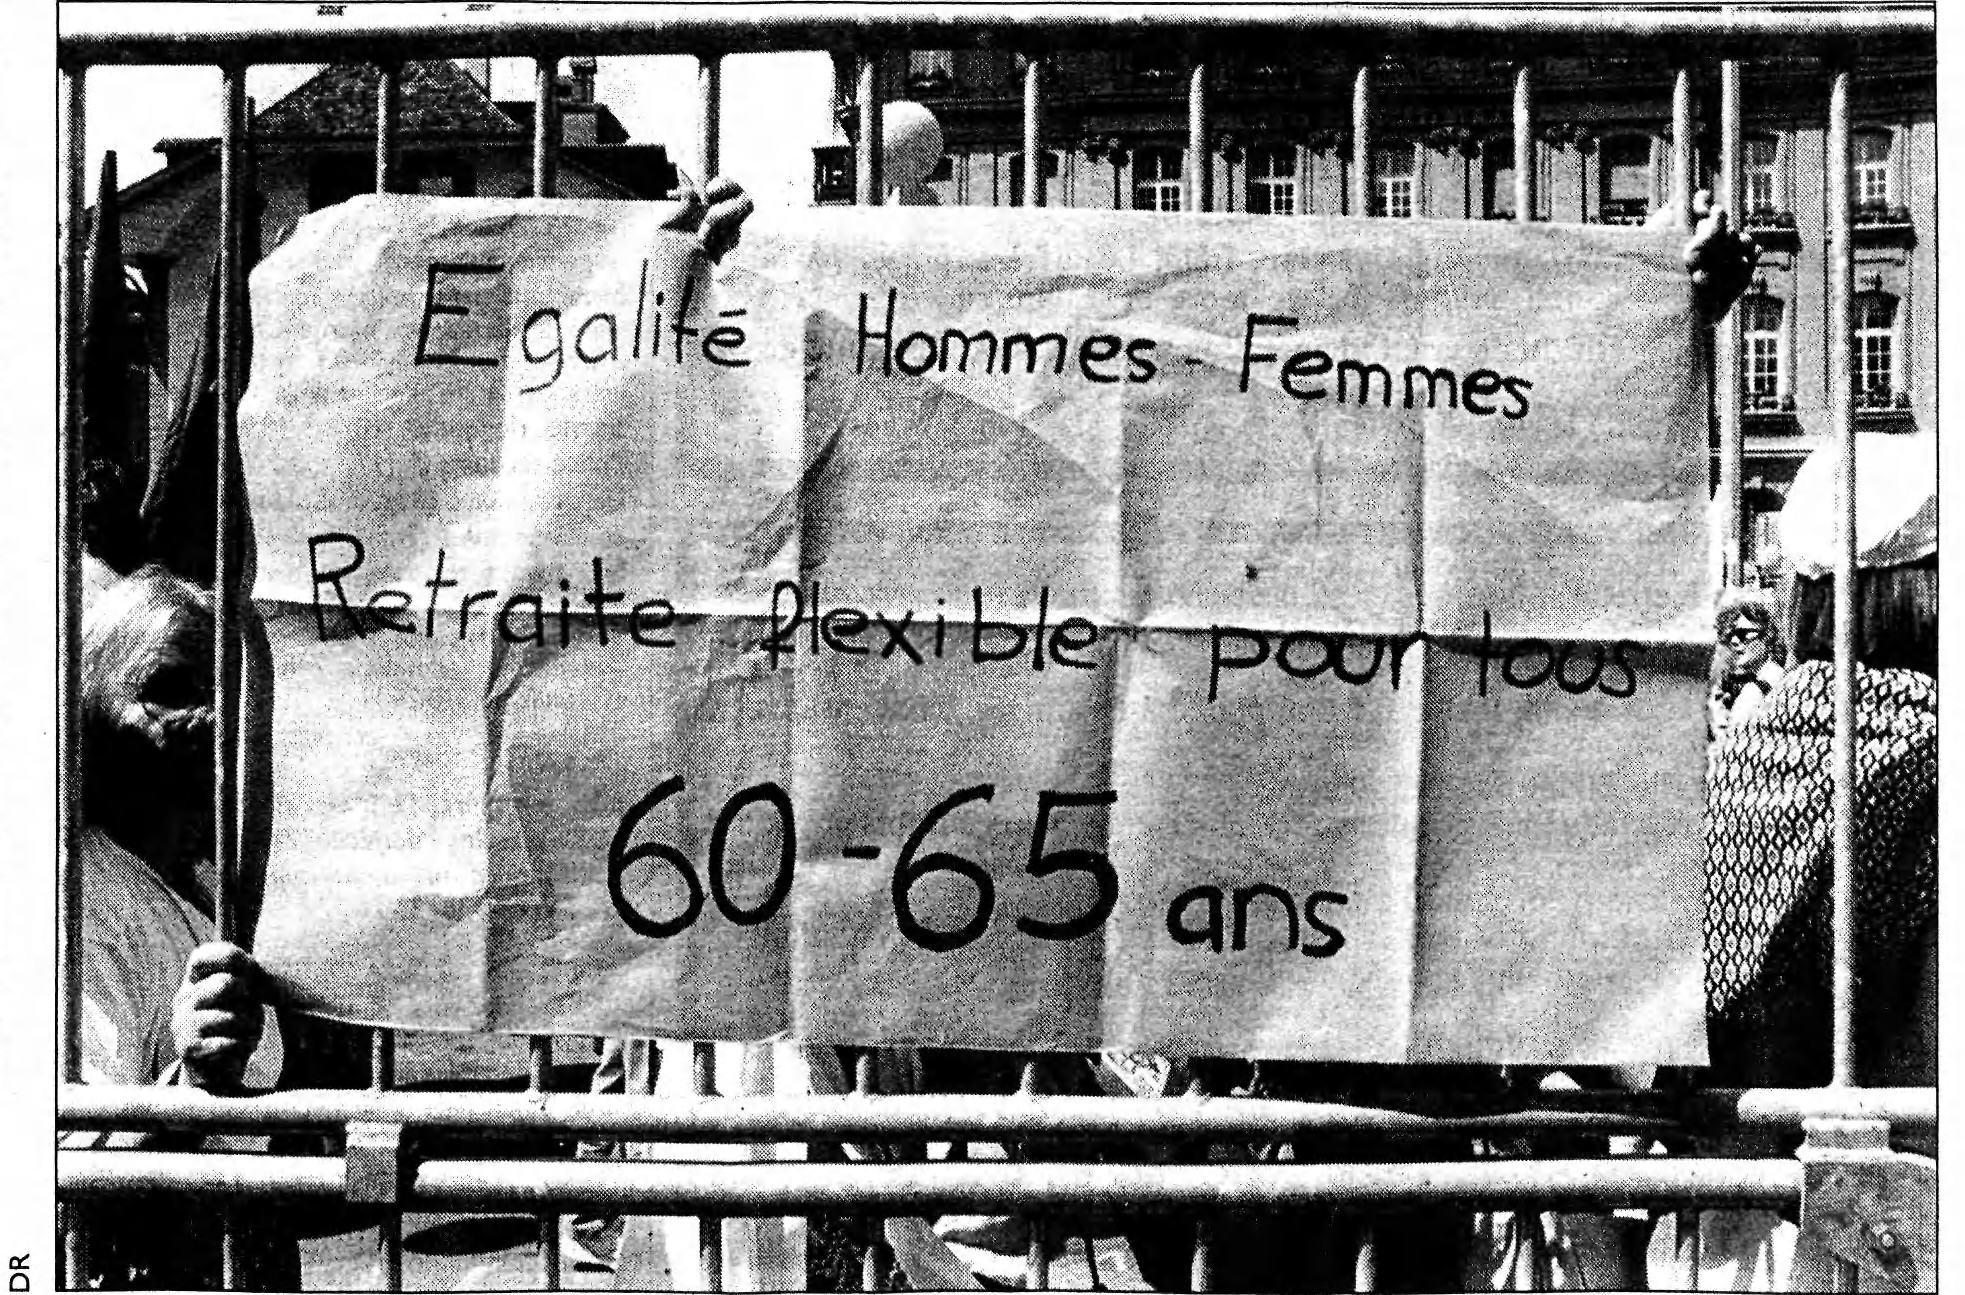 Egalité Hommes - Femmes
Retraite flexible pour tous
60-65 ans
DR